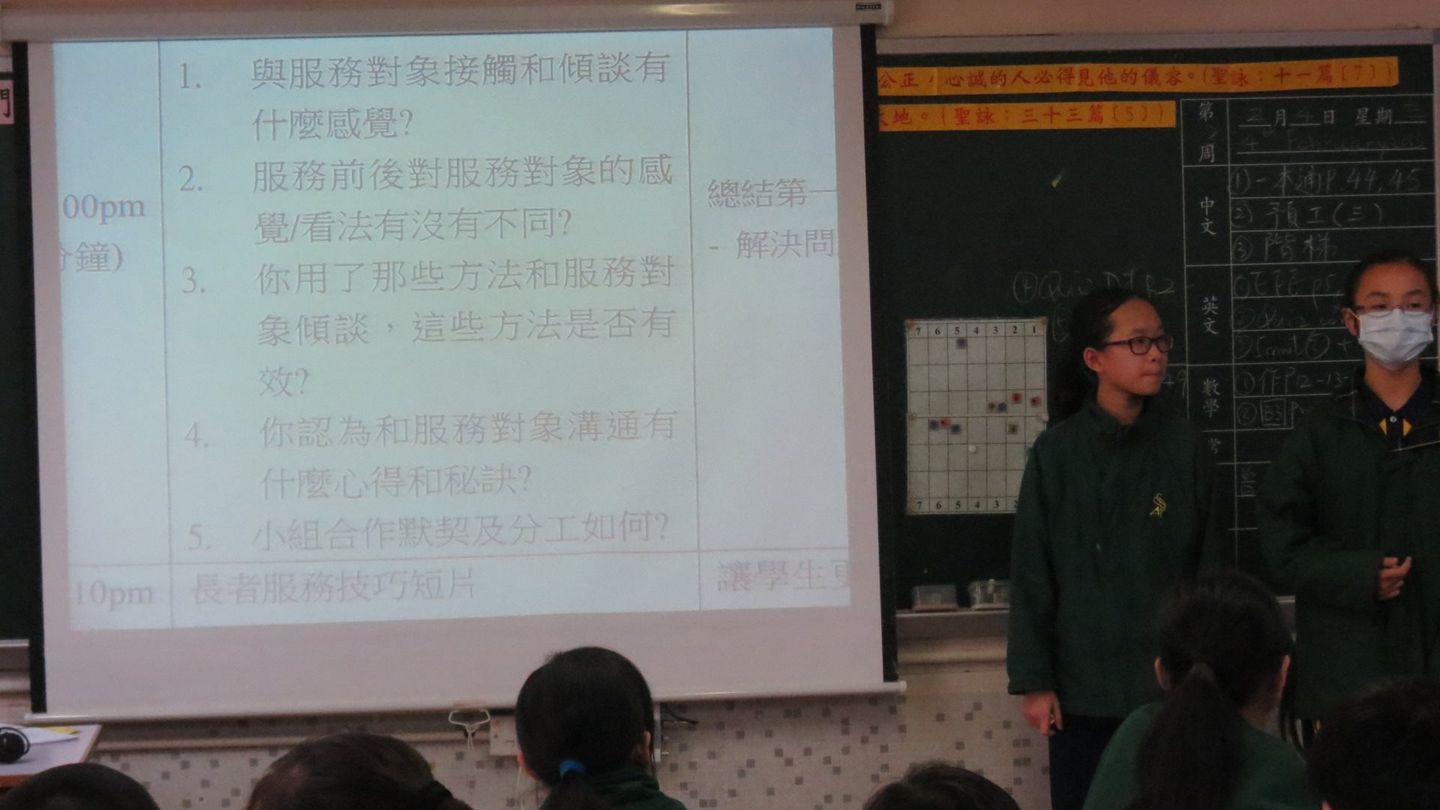 1. 與服務對象接觸和傾談有
什麼感覺?
2. 服務前後對服務對象的感
覺/看法有沒有不同?
3. 你用了那些方法和服務對
象傾談，這些方法是否有
效?
4. 你認為和服務對象溝通有
什麼心得和秘訣?
5. 小組合作默契及分工如何?
00pm
分鐘)
總結第一
- 解決問
10pm
長者服務技巧短片
讓學生更
們
公正，心誠的人必得見他的儀容。(聖詠：十一篇〔7〕)
天地。(聖詠：三十三篇〔5〕)
第 周
2月4日 星期三
中文
①一本通P.44,45
② 預工(三)
③ 階梯
英文
數學
①作P12-13
7 6 5 4 3 2 1
7 6 5 4 3 2